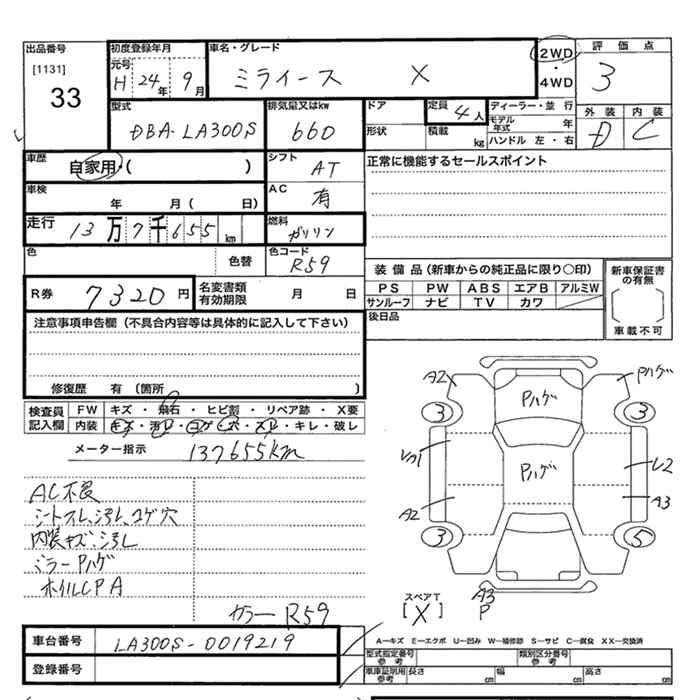 出品番号 初度登録年月 車名・グレード 2WD・4WD 評価点
[1131] 33 元号 H 24年 9月 ミライース X 3
型式 排気量又はkw ドア 定員 4人 ディーラー・並行 外装 内装
DBA-LA300S 660 形状 積載 kg モデル年式 年 D C
ハンドル 左・右
車歴 自家用・( ) シフト AT 正常に機能するセールスポイント
車検 年 月( 日) AC 有
走行 13万7千655km 燃料 ガソリン
色 色替 色コード R59
装備品(新車からの純正品に限り○印) 新車保証書の有無
R券 7320円 名変書類有効期限 月 日 PS PW ABS エアB アルミW
サンルーフ ナビ TV カワ
注意事項申告欄(不具合内容等は具体的に記入して下さい) 後日品 車載不可
修復歴 有(箇所 )
検査員記入欄 FW キズ・飛石・ヒビ割・リペア跡・X要
内装 キズ・汚レ・コゲ・穴・スレ・キレ・破レ
メーター指示 137655km
AC不良
シートスレ、汚レ、コゲ穴
内装キズ、汚レ
ミラーPハゲ
ホイルCPA
カラーR59
A2 Pハゲ Pハゲ
3 3
Pハゲ L2
A2 A3
3 5
スペアT [X] A3 P
A―キズ E―エクボ U―凹み W―補修跡 S―サビ C―腐食 XX―交換済
車台番号 LA300S-0019219 型式指定番号参考 類別区分番号参考
登録番号 車庫証明用参考 長さ cm 幅 cm 高さ cm